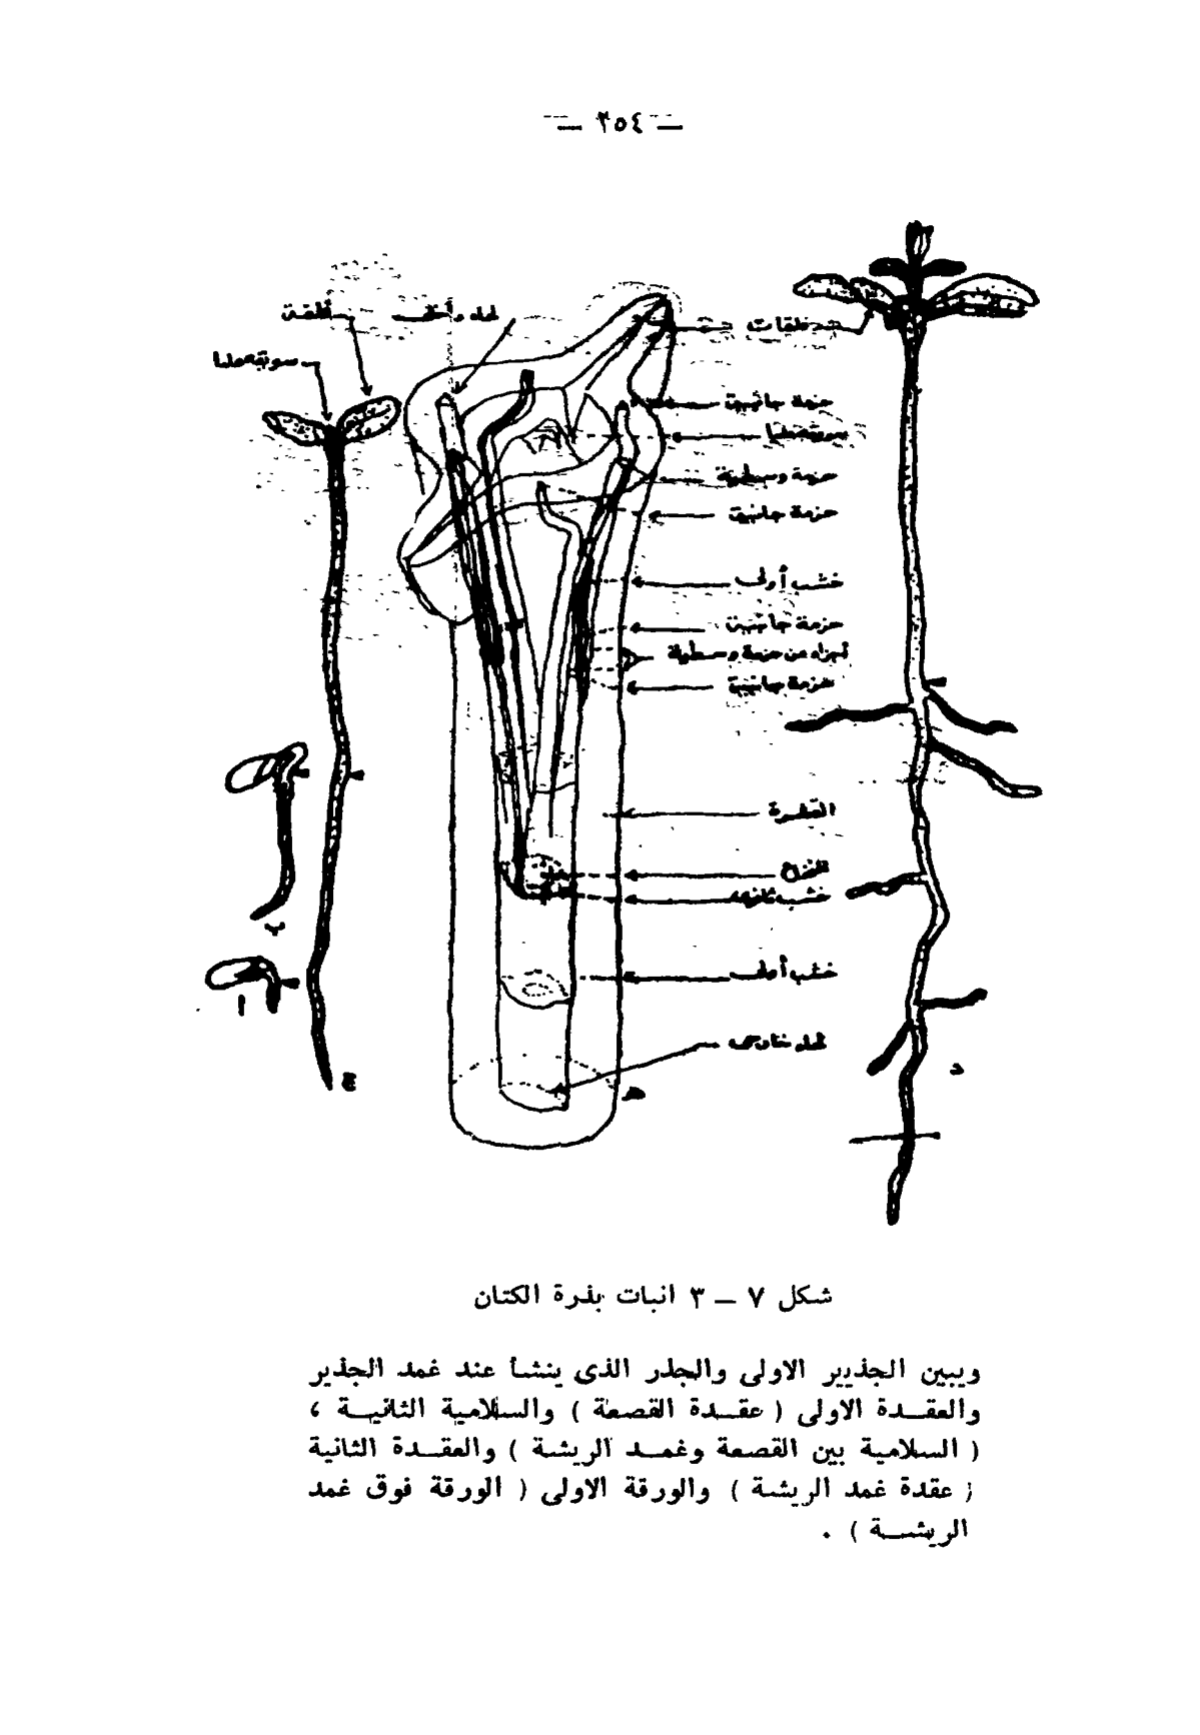 — ٣٥٤ —
فلقة
سويقة عليا
لحاء داخلى
فلقات
حزمة جانبية
سويقة عليا
حزمة وسطية
حزمة جانبية
خشب أولى
حزمة جانبية
أجزاء من حزمة وسطية
حزمة جانبية
القشرة
النخاع
خشب ثانوى
خشب أولى
لحاء خارجى
أ
ب
ج
د
هـ
شكل ٧ — ٣ انبات بذرة الكتان
ويبين الجذيير الاولى والجذر الذى ينشأ عند غمد الجذير
والعقدة الاولى ( عقدة القصعة ) والسلامية الثانية ،
( السلامية بين القصعة وغمد الريشة ) والعقدة الثانية
( عقدة غمد الريشة ) والورقة الاولى ( الورقة فوق غمد
الريشة ) .